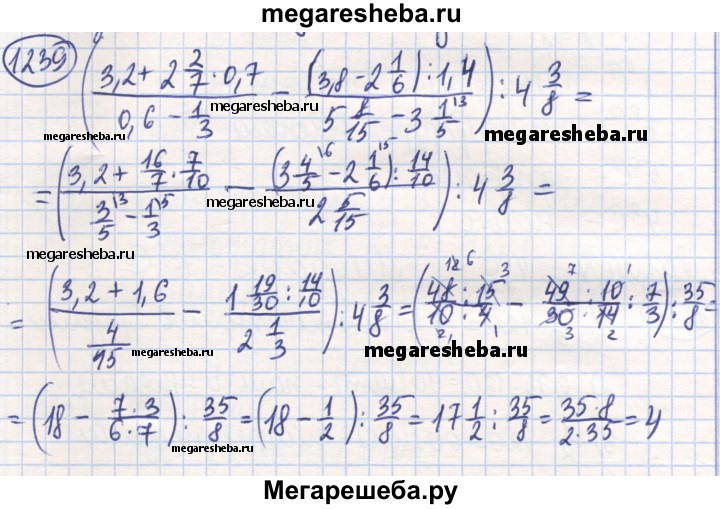 megaresheba.ru
1239 ( (3,2 + 2 2/7 · 0,7) / (0,6 - 1/3) - ((3,8 - 2 1/6) : 1,4) / (5 8/15 - 3 1/5 \3) ) : 4 3/8 =
megaresheba.ru megaresheba.ru megaresheba.ru
= ( (3,2 + 16/7 · 7/10) / (3/5 \3 - 1/3 \5) - ((3 4/5 \6 - 2 1/6 \5) : 14/10) / (2 5/15) ) : 4 3/8 =
megaresheba.ru megaresheba.ru
= ( (3,2 + 1,6) / (4/15) - (1 19/30 : 14/10) / (2 1/3) ) : 4 3/8 = ( (48 · 15)/(10 · 4) - (49 · 10)/(30 · 14) : 7/3 ) : 35/8 =
megaresheba.ru megaresheba.ru
= (18 - (7 · 3)/(6 · 7)) : 35/8 = (18 - 1/2) : 35/8 = 17 1/2 : 35/8 = (35 · 8)/(2 · 35) = 4
megaresheba.ru
Мегарешеба.ру